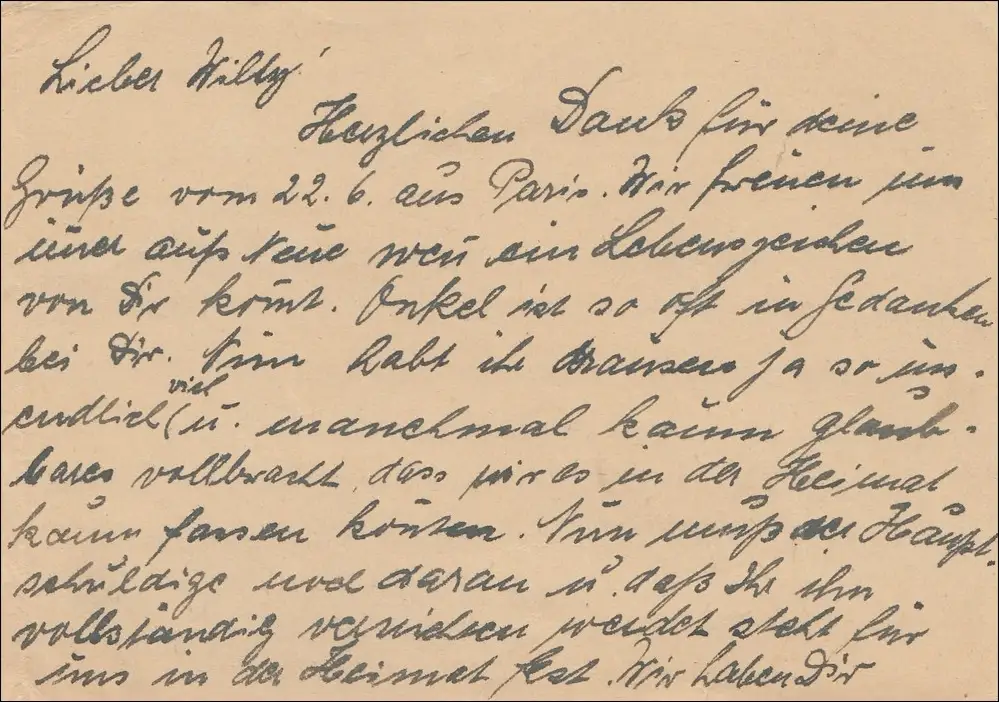 Lieber Willy!
Herzlichen Dank für deine
Grüße vom 22. 6. aus Paris. Wir freuen uns
imer aufs Neue wen ein Lebenszeichen
von Dir komt. Onkel ist so oft in Gedanken
bei Dir. Nun habt ihr drausen ja so un-
endlich (viel
u. manchmal kaum glaub-
bares vollbracht, dass wir es in der Heimat
kaum fassen konten. Nun muß der Haupt-
schuldige noch daran u. daß Ihr ihn
vollständig vernichten werdet steht für
uns in der Heimat fest. Wir haben Dir